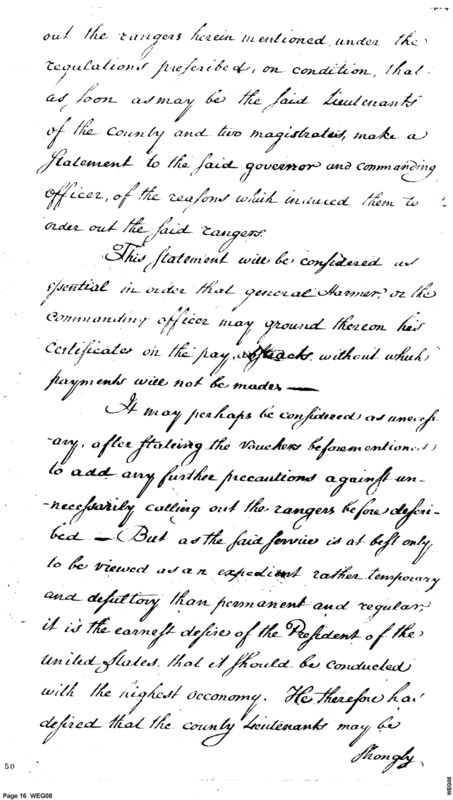 out the rangers herein mentioned under the
regulations prescribed, on condition, that
as, soon as may be the said Lieutenants
of the county and two magistrates, make a
statement to the said governor and commanding
officer, of the reasons which induced them to
order out the said rangers.
This statement will be considered as
essential in order that general Harmer, or the
commanding officer may ground thereon his
certificates on the pay, abstracts, without which
payments will not be made. —
It may perhaps be considered as unnecess
-ary, after stateing the vouchers beforementioned
to add any further precautions against un-
-necessarily calling out the rangers before descri-
bed — But as the said service is at best only
to be viewed as an expedient rather temporary
and desultory than permanent and regular,
it is the earnest desire of the President of the
united States, that it should be conducted
with the highest oeconomy. He, therefore has
desired that the county Lieutenants may be
strongly
50
Page 16 WEG08
WEG08